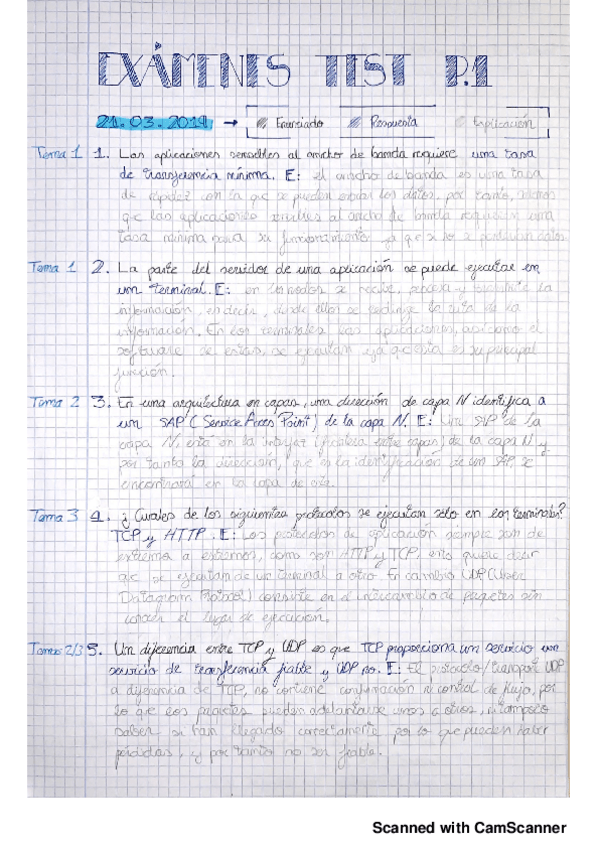 EXÁMENES TEST P.1
21.03.2019 → Enunciado Respuesta Explicación
Tema 1 1. Las aplicaciones sensibles al ancho de banda requiere una tasa
de transferencia mínima. E: el ancho de banda es una tasa
de rapidez con la que se pueden enviar los datos, por tanto,
que las aplicaciones sensibles al ancho de banda requieren una
tasa mínima para su funcionamiento ya que si no se perderían datos
Tema 1 2. La parte del servidor de una aplicación se puede ejecutar en
un terminal. E: en los nodos se recibe, procesa y transmite la
información, es decir, desde ellos se redirige la ruta de la
información. En los terminales las aplicaciones, así como el
software de estas, se ejecutan ya que esta es su principal
función.
Tema 2 3. En una arquitectura en capas, una dirección de capa N identifica a
un SAP (Service Acces Point) de la capa N. E: Un SAP de la
capa N, está en la interfaz (frontera entre capas) de la capa N y
por tanto la dirección, que es la identificación de un SAP, se
encontrará en la capa de
Tema 3 4. ¿Cuales de los siguientes protocolos se ejecutan sólo en los terminales?
TCP y HTTP. E: Los protocolos de aplicación siempre son de
extremo a extremo, como son HTTP y TCP, esto quiere decir
que se ejecutan de un terminal a otro. En cambio UDP (User
Datagram Protocol) consiste en el intercambio de paquetes sin
conocer el lugar de ejecución.
Temas 2/3 5. Un diferencia entre TCP y UDP es que TCP proporciona un servicio con
servicio de transferencia fiable y UDP no. E: El protocolo/transport UDP
a diferencia de TCP, no contiene confirmación ni control de flujo, por
lo que los paquetes pueden adelantarse unos a otros, ni tampoco
saber si han llegado correctamente por lo que pueden haber
pérdidas, y por tanto no ser fiable.
Scanned with CamScanner